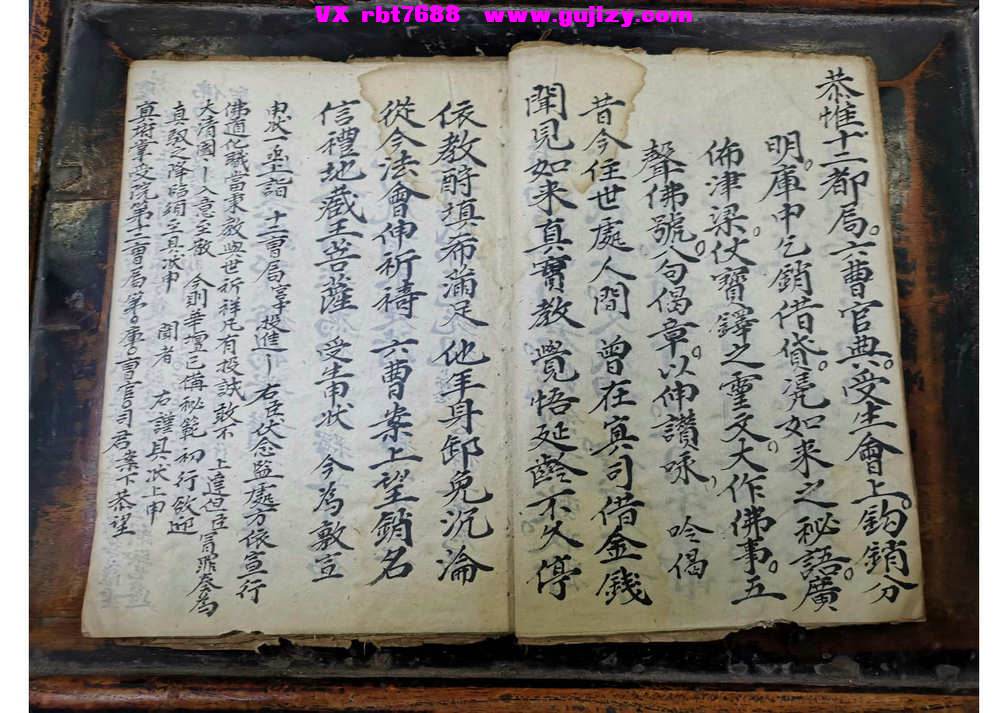 VX rbt7688 www.gujizy.com
恭惟十二都局。六曹官典。受生會上。鈎銷分
明。庫中乞銷借貸。凴如来之秘語。廣
佈津梁。仗寶鐸之靈文。大作佛事。五
聲佛號。八句偈章。以伸讃咏 吟偈
昔今住世處人間 曾在冥司借金錢
聞見如来真寶教 覺悟延齡不久停
依教酧填布滿足 他年身卸免沉淪
從今法會伸祈禱 六曹案上望銷名
信禮地藏王菩薩 受生申狀 今為敷宣
申狀一函詣 十二曹局 投進 右臣伏念監處方依宣行
佛道化職當秉教與世祈祥凡有投誠敢不 上達但臣 冒罪奏為
大清國 入意至敬 今則華壇已備秘範初行欲迎
真馭之降臨須至具状申 聞者 右謹具状上申
冥府 院第十二曹局第 庫 曹官司君案下恭望